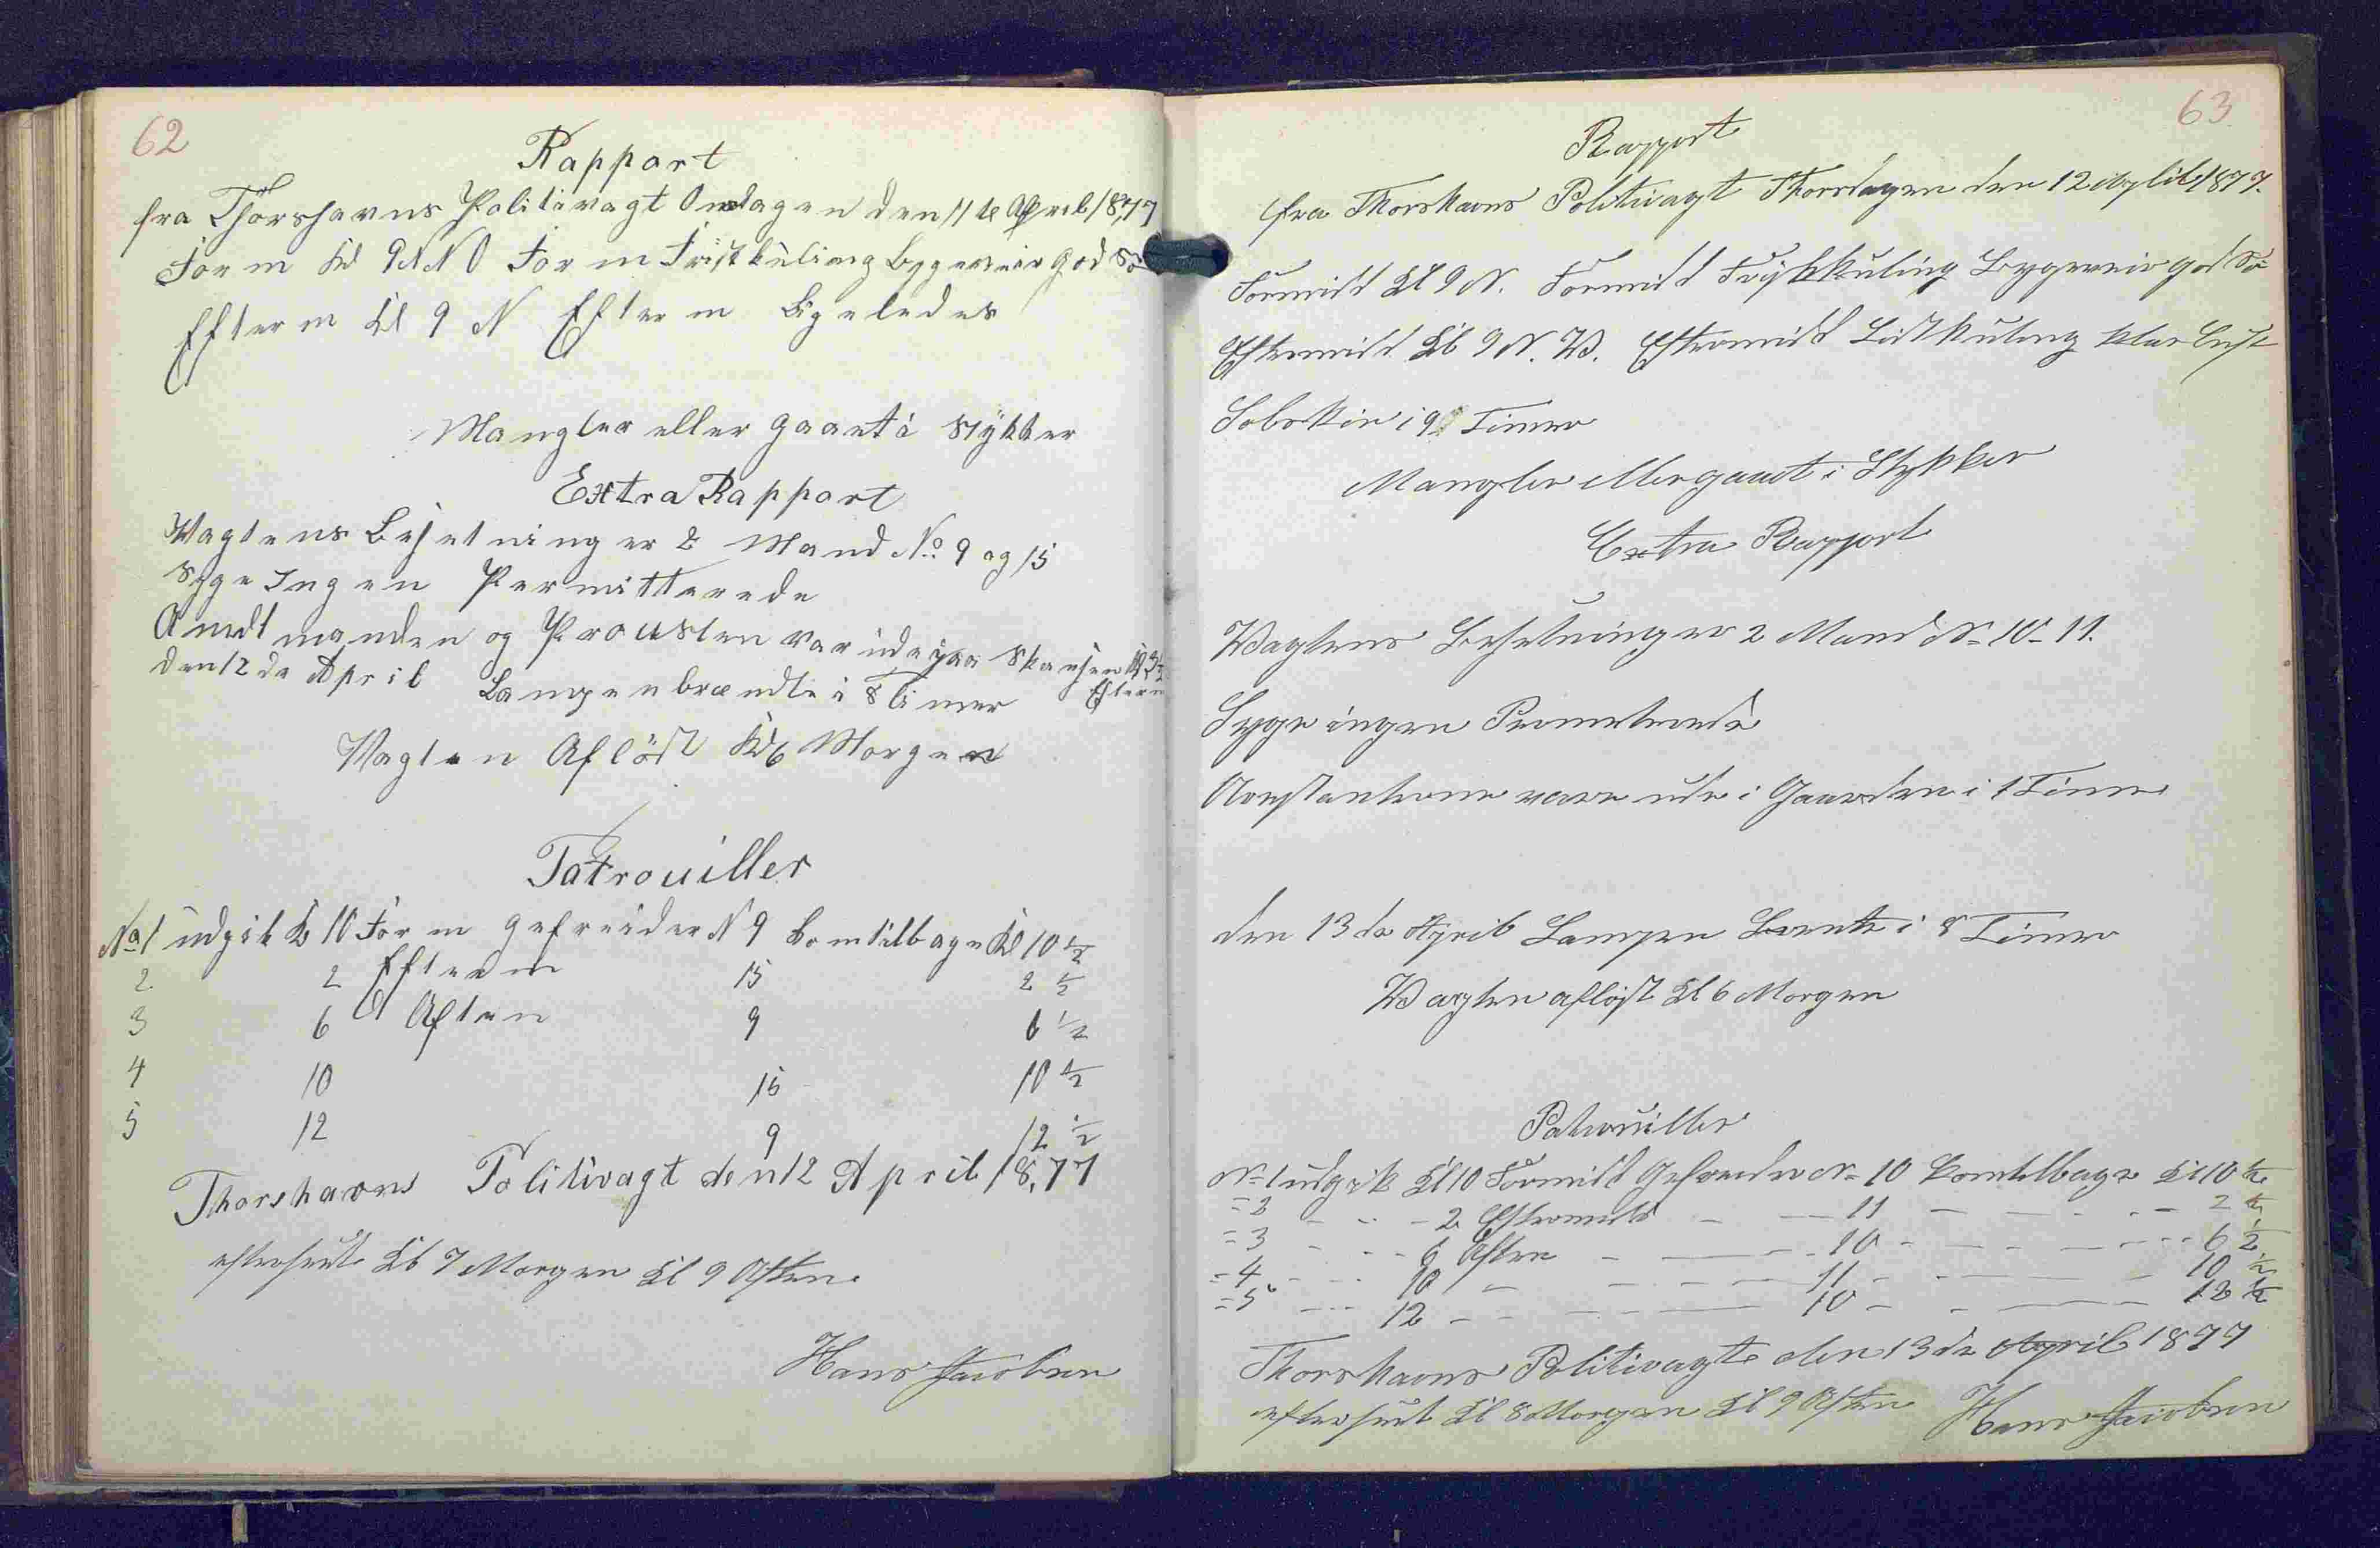 62
Rappart
fra Thorshavns Politivagt Onsdagen den 11 te April 18,77
Form Kl 9 NNO Form Friskkuling Bygeveir god Sö
Efterm Kl 9 N Efterm Ligeledes
Mangler eller gaaet i Stykker
Extra Rappart
Vagtens Besetning er 2 Mand No 9 og 15
Syge Ingen Permitterede
Amdtmanden og Prousten var ude paa Skansen Kl 3½
Efterm
den 12 de April Lampen brændte i 8 Timer
Vagten Aflöst Kl 6 Morgen
Patrouiller
No 1 udgik Kl 10 Form gefreider N 9 kom tilbage Kl 10 ½
2 2 Efterm 15 2 ½
3 6 Aften 9 6 ½
4 10 15 10 ½
5 12 9 12 ½
Thorshavns Politivagt den 12 April 18,77
efterseet Kl 7 Morgen Kl 9 Aften.
Hans Jacobsen
63
Rapport
fra Thorshavns Politivagt Thorsdagen den 12 April 1877.
Formidd Kl 9 N. Formidd Friskkuling Bygeveir god Sö
Eftermidd Kl 9 N. W. Eftermidd Listkuling klar Luft
Solskin i 9 Timer
Mangler eller gaaet i Stykker
Extra Rapport
Wagtens Besetning er 2 Mand No 10 - 11.
Syge ingen Permeterede
Arestanterne vare ude i Gaarden i 1 Time
den 13 de April Lampen Brente i 8 Timer
Wagten afløst Kl 6 Morgen
Patrouiller
No 1 udgik Kl 10 Formidd Gefreider No 10 kom tilbage Kl 10 ½
= 2 - - - 2 Eftermidd - - 11 - - - - 2 ½
= 3 - - - 6 Aften - - - 10 - - - - - 6 ½
= 4 - - - 10 - - - - 11 - - - 10 ½
= 5 - - - 12 - - - - 10 - - - 12 ½
Thorshavns Politivagt den 13 de April 1877
efterseet Kl 8 Morgen Kl 9 Aften Hans Jacobsen